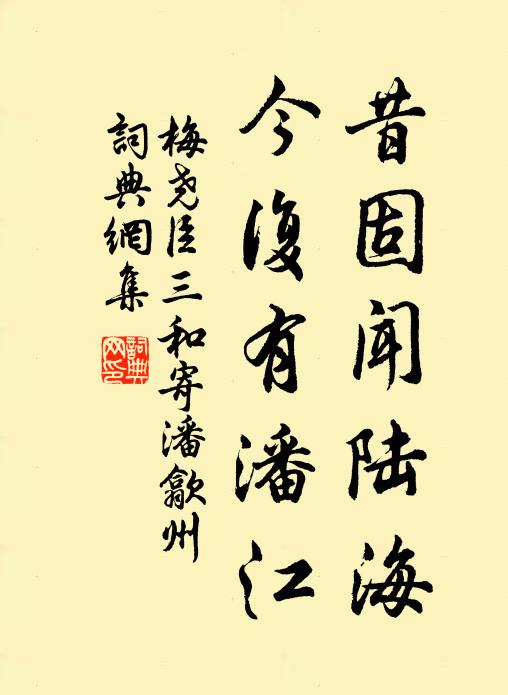 昔固闻陆海
今復有潘江
梅尧臣三和寄潘歙州
詞典網集
詞典
网印